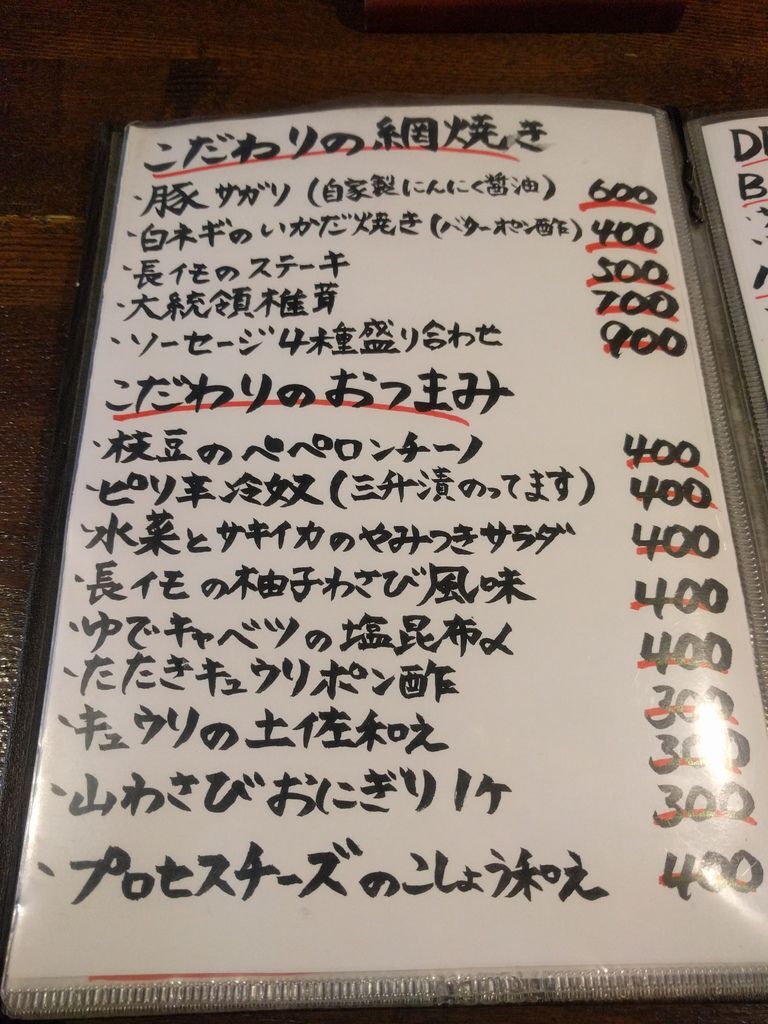 こだわりの網焼き
・豚サガリ（自家製にんにく醤油） 600
・白ネギのいかだ焼き（バターポン酢） 400
・長イモのステーキ 500
・大統領椎茸 700
・ソーセージ4種盛り合わせ 900
こだわりのおつまみ
・枝豆のペペロンチーノ 400
・ピリ辛冷奴（三升漬のってます） 400
・水菜とサキイカのやみつきサラダ 400
・長イモの柚子わさび風味 400
・ゆでキャベツの塩昆布〆 400
・たたきキュウリポン酢 300
・キュウリの土佐和え 300
・山わさびおにぎり1ケ 300
・プロセスチーズのこしょう和え 400
D
B